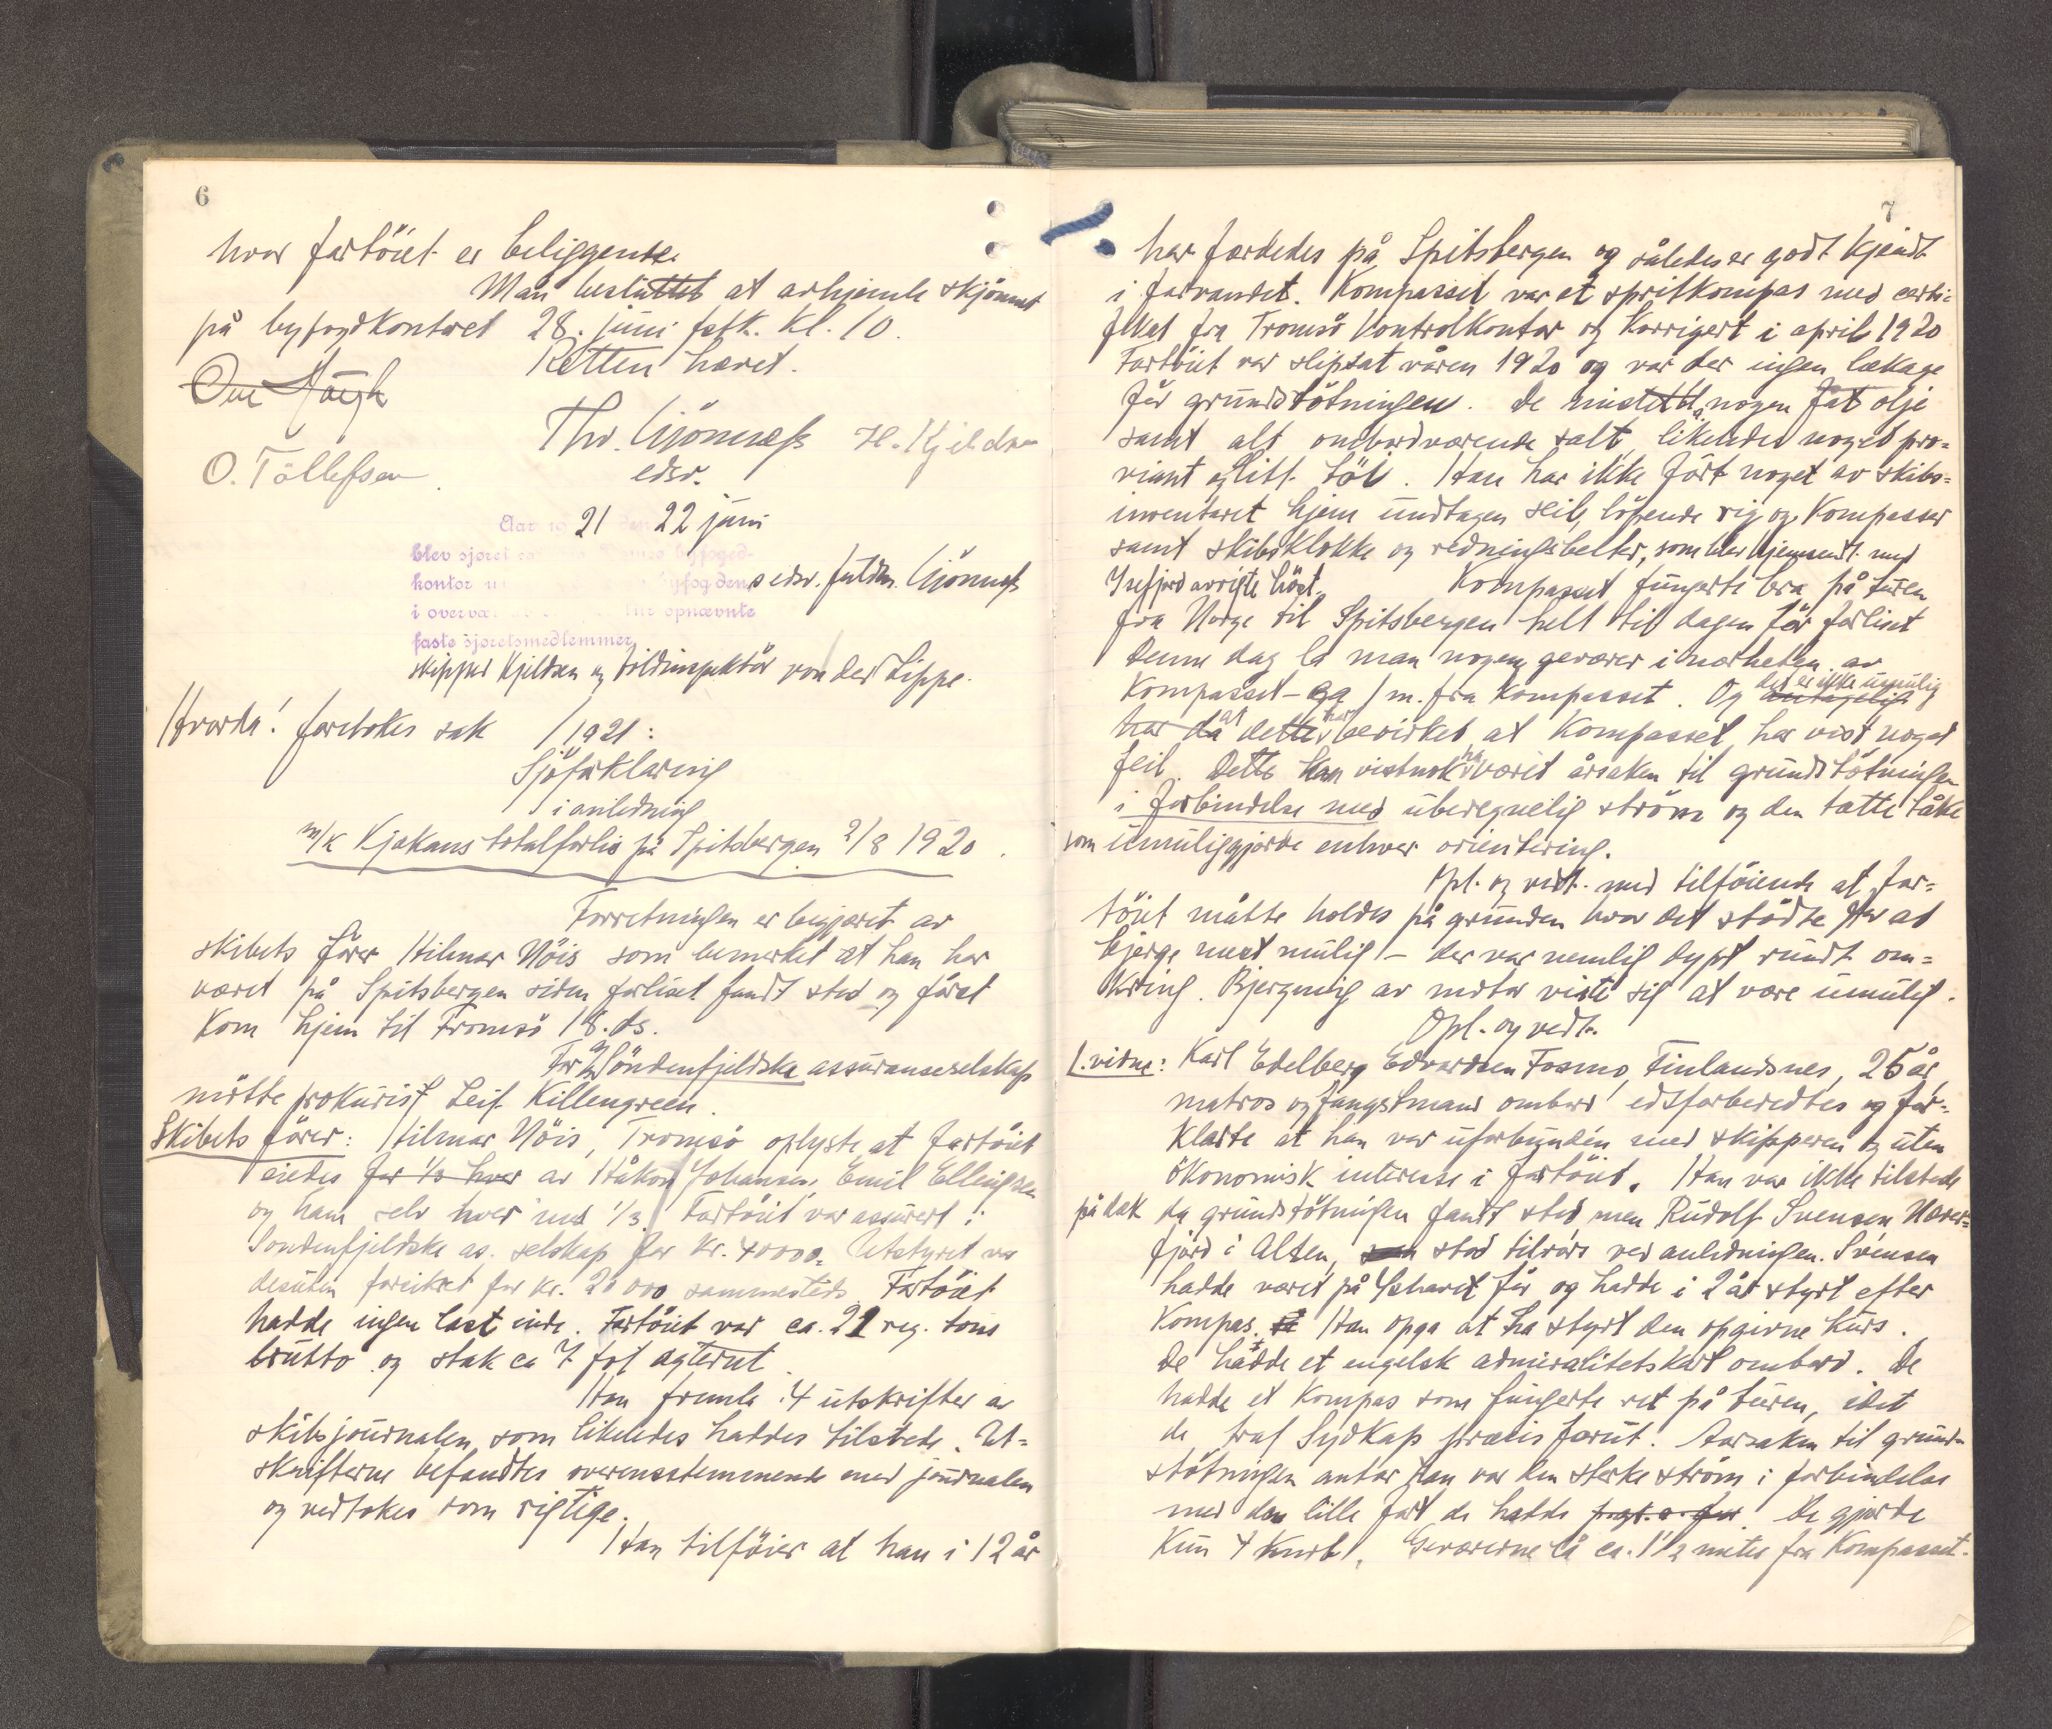 6
hvor fartöiet er beliggende.
Man besluttet at avhjemle skjönnet
på byfogdkontoret 28. juni förstk. Kl. 10.
Retten hævet.
O. Tollefsen
Thv. H. Kjeldsen
edsv.
Aar 1921 den 22 juni
blev sjøret byfoged-
kontor byfogdens edsv. fuldm.
i overvær opnævnte
faste sjøretsmedlemmer
skipper Kjeldsen og tildinspektör von der Lippe.
Hvorda! foretokes sak 1/1921:
Sjöforklaring
i anledning
m/k Kjakans totalforlis på Spitsbergen 2/8 1920.
Forretningen er begjæret av
skibets förer Hilmar Nöis som bemerket at han har
været på Spitsbergen siden forliset fandt sted og först
kom hjem til Tromsö 18. ds.
For Söndenfjeldske assuranseselskap
mötte prokurist Leif Killengreen.
Skibets förer: Hilmar Nöis, Tromsö oplyste at fartöiet
eiedes for 1/3 hver av Håkon Johansen, Emil Ellingsen
og ham selv hver med 1/3. Fartöiet var assurert i
Sondenfjeldske as. selskap for kr. 40000. Utstyret var
desuten forsikret for kr. 20 000 sammesteds. Fartöiet
hadde ingen last inde. Fartöiet var ca. 21 reg. tons
brutto og stak ca 7 fot agterut.
Han fremla 4 utskrifter av
skibsjournalen, som likeledes haddes tilstede. Ut-
skrifterne befandtes overensstemmende med journalen
og vedtokes som rigtige.
Han tilföier at han i 12 år
7
har færdedes på Spitsbergen og således er godt kjendt
i farvandet. Kompasset var et spritkompas med certi-
fikat fra Tromsö Kontrolkontor og Korrigert i april 1920
Fartöiet var slipsat våren 1920 og var der ingen lækage
för grundstötningen. De mistet nogen fat olje
samt alt ombordværende salt, likeledes noget pro-
viant og litt töi. Han har ikke fört noget av skibs-
inventaret hjem undtagen seil, löpende rig og Kompasser
samt skibsklokke og redningsbelter, som blev hjemsendt med
Isefjord
Kompasset fungerte bra på turen
fra Norge til Spitsbergen helt til dagen för forliset
Denne dag la man nogen geværer i nærheten av
Kompasset - ca 1 m. fra kompasset. Og det er ikke umulig
har da at dette har bevirket at Kompasset har vist noget
feil. Dette kan vistnok ha været årsaken til grundstötningen
i forbindelse med uberegnelig ström og den tætte tåke
som umuliggjorde enhver orientering.
Opl. og vedt. med tilföiende at far-
töiet måtte holdes på grunden hvor det stödte for at
bjerge mest mulig - der var nemlig dypt rundt om-
kring. Bjergning av motor viste sig at være umulig.
Opl. og vedt.
1. vidne: Karl Edelberg Edvardsen Fosmo, Finlandsnes, 25 år,
matros og fangstmand ombord edsforberedtes og for-
klarte at han var uforbunden med skipperen og uten
ökonomisk interesse i fartöiet. Han var ikke tilstede
på dæk da grundstötningen fandt sted, men Rudolf Svensen Nærer-
fjord i Alten, stod tilrors ved anledningen. Svensen
hadde været på Ishavet för og hadde i 2 år styrt efter
Kompas. Han opga at ha styrt den opgivne kurs.
De hadde et engelsk admiralitetskart ombord. De
hadde et Kompas som fungerte ret på turen, idet
de traf Sydkap præcis forut. Aarsaken til grund-
stötningen antar han var den sterke ström i forbindelse
med den lille fart de hadde De gjorde
Kun 4 knob. Geværerne lå ca. 1 1/2 meter fra Kompasset.